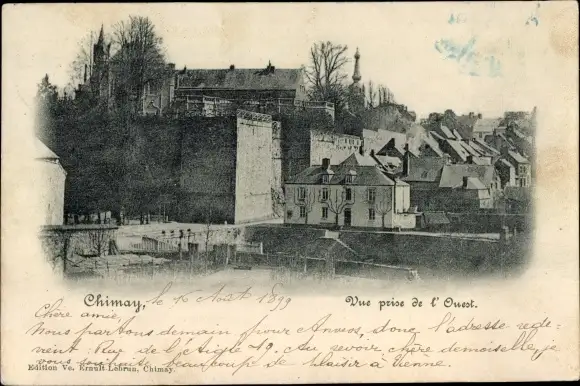 Chimay, le 10 Août 1899
Vue prise de l'Ouest.
Chère amie,
Nous partons demain pour Anvers, donc l'adresse rede-
vient: Rue de l'Aigle 19. Au revoir chère demoiselle, je
vous souhaite beaucoup de plaisir à Vienne.
Edition Ve. Ernult-Lebrun, Chimay.